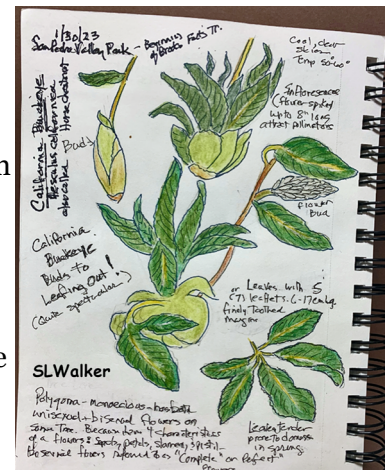 1/30/23
San Pedro Valley Park - Beginning of Brooks Falls Tr.
Cool, clear
skies
Temp 50°-60°
California Buckeye
Aesculus californica
also called Horsechestnut
Buds
Inflorescence
(flower spike)
up to 8" long
attract pollinators
flower
Bud
California
Buckeye
Buds to
Leafing Out!
(Quite spectacular)
Leaves with 5
(7) leaflets. 6-17 cm lg.
finely Toothed
margins
SLWalker
Polygamo - monoecious - has both
unisexual + bisexual flowers on
same Tree. Because 4 characteristics
of a flower: Sepals, petals, stamens, pistil
Bisexual flowers referred to as "Complete" or Perfect
Leaves tender
prone to
in spring.